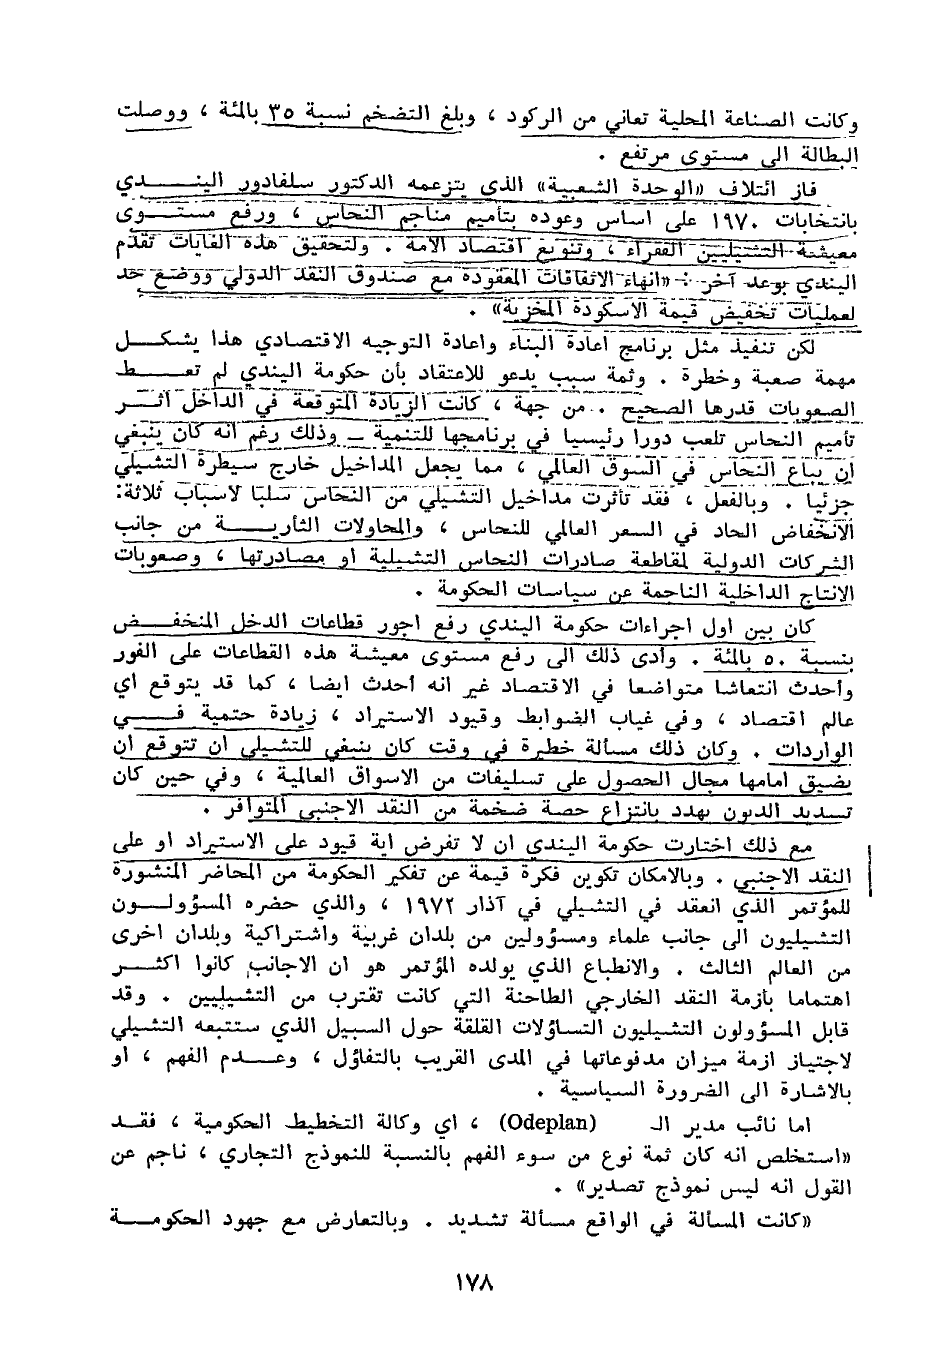 وكانت الصناعة المحلية تعاني من الركود ، وبلغ التضخم نسبة ٣٥ بالمئة ، ووصلت
البطالة الى مستوى مرتفع .
فاز ائتلاف «الوحدة الشعبية» الذي يتزعمه الدكتور سلفادور اليندي
بانتخابات ١٩٧٠ على اساس وعوده بتأميم مناجم النحاس ، ورفع مستوى
معيشة التشيليين الفقراء ، وتنويع اقتصاد الامة . ولتحقيق هذه الغايات تقدم
اليندي بوعد آخر : «انهاء الاتفاقات المعقودة مع صندوق النقد الدولي ووضع حد
لعمليات تخفيض قيمة الاسكودة المخزية» .
لكن تنفيذ مثل برنامج اعادة البناء واعادة التوجيه الاقتصادي هذا يشكل
مهمة صعبة وخطرة . وثمة سبب يدعو للاعتقاد بأن حكومة اليندي لم تعط
الصعوبات قدرها الصحيح . من جهة ، كانت الزيادة المتوقعة في الداخل اثر
تأميم النحاس تلعب دورا رئيسيا في برنامجها للتنمية ــ وذلك رغم انه كان ينبغي
ان يباع النحاس في السوق العالمي ، مما يجعل المداخيل خارج سيطرة التشيلي
جزئيا . وبالفعل ، فقد تأثرت مداخيل التشيلي من النحاس سلبا لاسباب ثلاثة:
الانخفاض الحاد في السعر العالمي للنحاس ، والمحاولات الثأرية من جانب
الشركات الدولية لمقاطعة صادرات النحاس التشيلية او مصادرتها ، وصعوبات
الانتاج الداخلية الناجمة عن سياسات الحكومة .
كان بين اول اجراءات حكومة اليندي رفع اجور قطاعات الدخل المنخفض
بنسبة ٥٠ بالمئة . وأدى ذلك الى رفع مستوى معيشة هذه القطاعات على الفور
وأحدث انتعاشا متواضعا في الاقتصاد غير انه أحدث ايضا ، كما قد يتوقع اي
عالم اقتصاد ، وفي غياب الضوابط وقيود الاستيراد ، زيادة حتمية في
الواردات . وكان ذلك مسألة خطيرة في وقت كان ينبغي للتشيلي ان تتوقع ان
يضيق امامها مجال الحصول على تسليفات من الاسواق العالمية ، وفي حين كان
تسديد الديون يهدد بانتزاع حصة ضخمة من النقد الاجنبي المتوافر .
مع ذلك اختارت حكومة اليندي ان لا تفرض اية قيود على الاستيراد او على
النقد الاجنبي . وبالامكان تكوين فكرة قيمة عن تفكير الحكومة من المحاضر المنشورة
للمؤتمر الذي انعقد في التشيلي في آذار ١٩٧٢ ، والذي حضره المسؤولون
التشيليون الى جانب علماء ومسؤولين من بلدان غربية واشتراكية وبلدان اخرى
من العالم الثالث . والانطباع الذي يولده المؤتمر هو ان الاجانب كانوا اكثر
اهتماما بأزمة النقد الخارجي الطاحنة التي كانت تقترب من التشيليين . وقد
قابل المسؤولون التشيليون التساؤلات القلقة حول السبيل الذي ستتبعه التشيلي
لاجتياز ازمة ميزان مدفوعاتها في المدى القريب بالتفاؤل ، وعدم الفهم ، او
بالاشارة الى الضرورة السياسية .
اما نائب مدير الـ (Odeplan) ، اي وكالة التخطيط الحكومية ، فقد
«استخلص انه كان ثمة نوع من سوء الفهم بالنسبة للنموذج التجاري ، ناجم عن
القول انه ليس نموذج تصدير» .
«كانت المسألة في الواقع مسألة تشديد . وبالتعارض مع جهود الحكومة
١٧٨